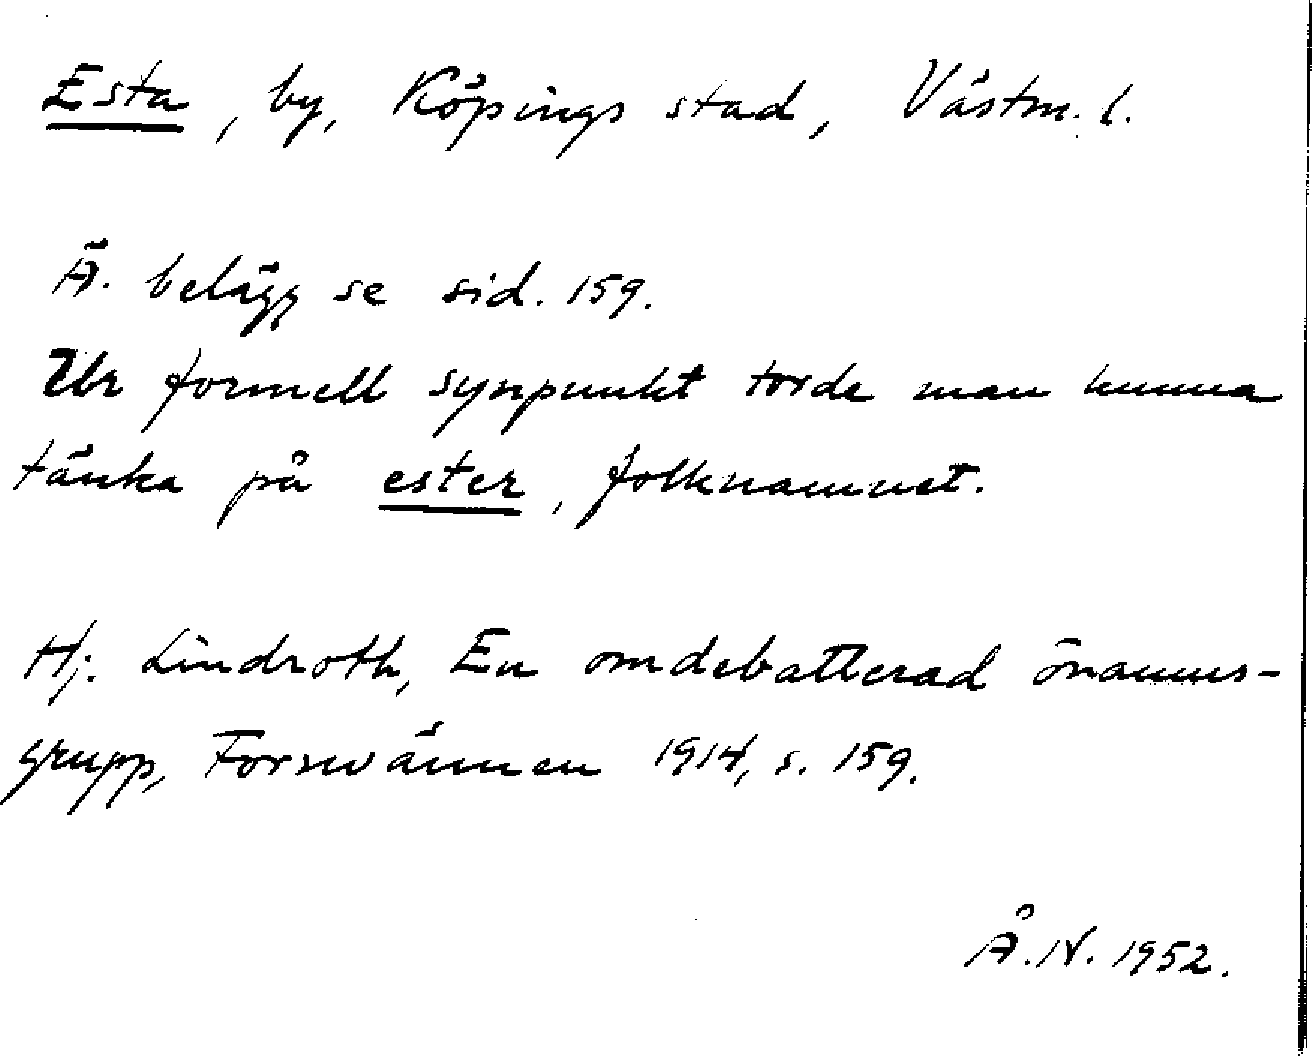 Esta, by, Köpings stad, Västm. l.
Ä. belägg se sid. 159.
Ur formell synpunkt torde man kunna
tänka på ester, folknamnet.
Hj. Lindroth, En omdebatterad önamns-
grupp, Fornvännen 1914, s. 159.
Å.N. 1952.